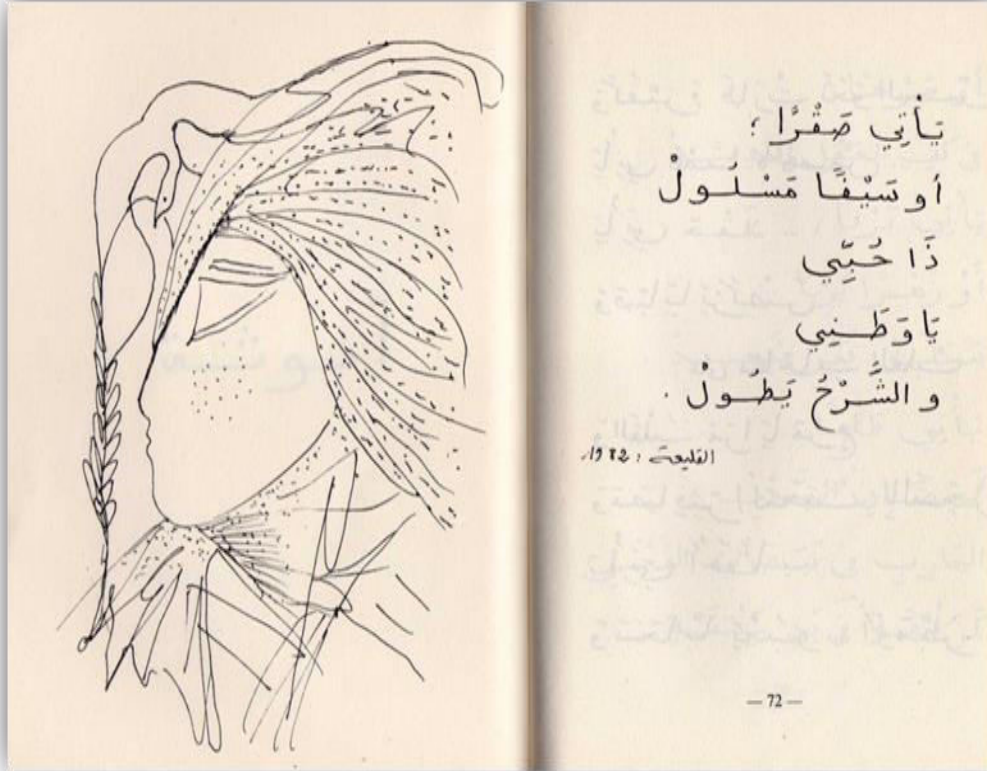 يَأْتِي صَقْرًا ؛
أو سَيْفًا مَسْلُولْ
ذَا حُبِّي
يَا وَطَنِي
و الشَّرْحُ يَطُولْ .
القليعة : 1982.
— 72 —